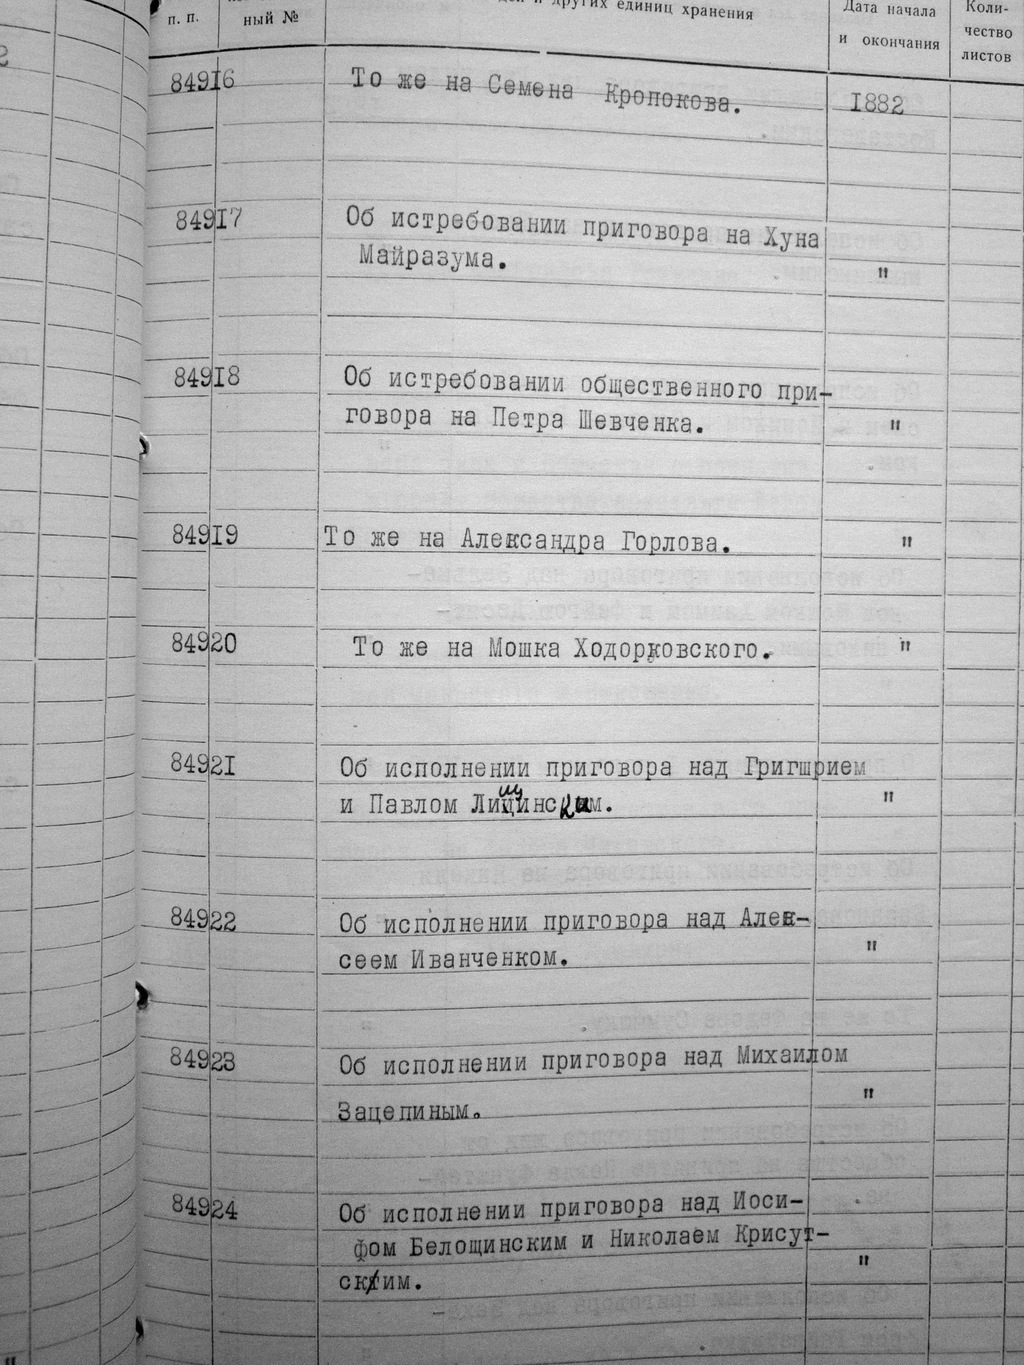 п. п.
ный №
и других единиц хранения
Дата начала
и окончания
Коли-
чество
листов
84916 То же на Семена Кропокова. 1882
84917 Об истребовании приговора на Хуна
Майразума. "
84918 Об истребовании общественного при-
говора на Петра Шевченка. "
84919 То же на Александра Горлова. "
84920 То же на Мошка Ходорковского. "
84921 Об исполнении приговора над Григшрием
и Павлом Лищинским. "
84922 Об исполнении приговора над Алек-
сеем Иванченком. "
84923 Об исполнении приговора над Михаилом
Зацепиным. "
84924 Об исполнении приговора над Иоси-
фом Белощинским и Николаем Крисут-
ским. "